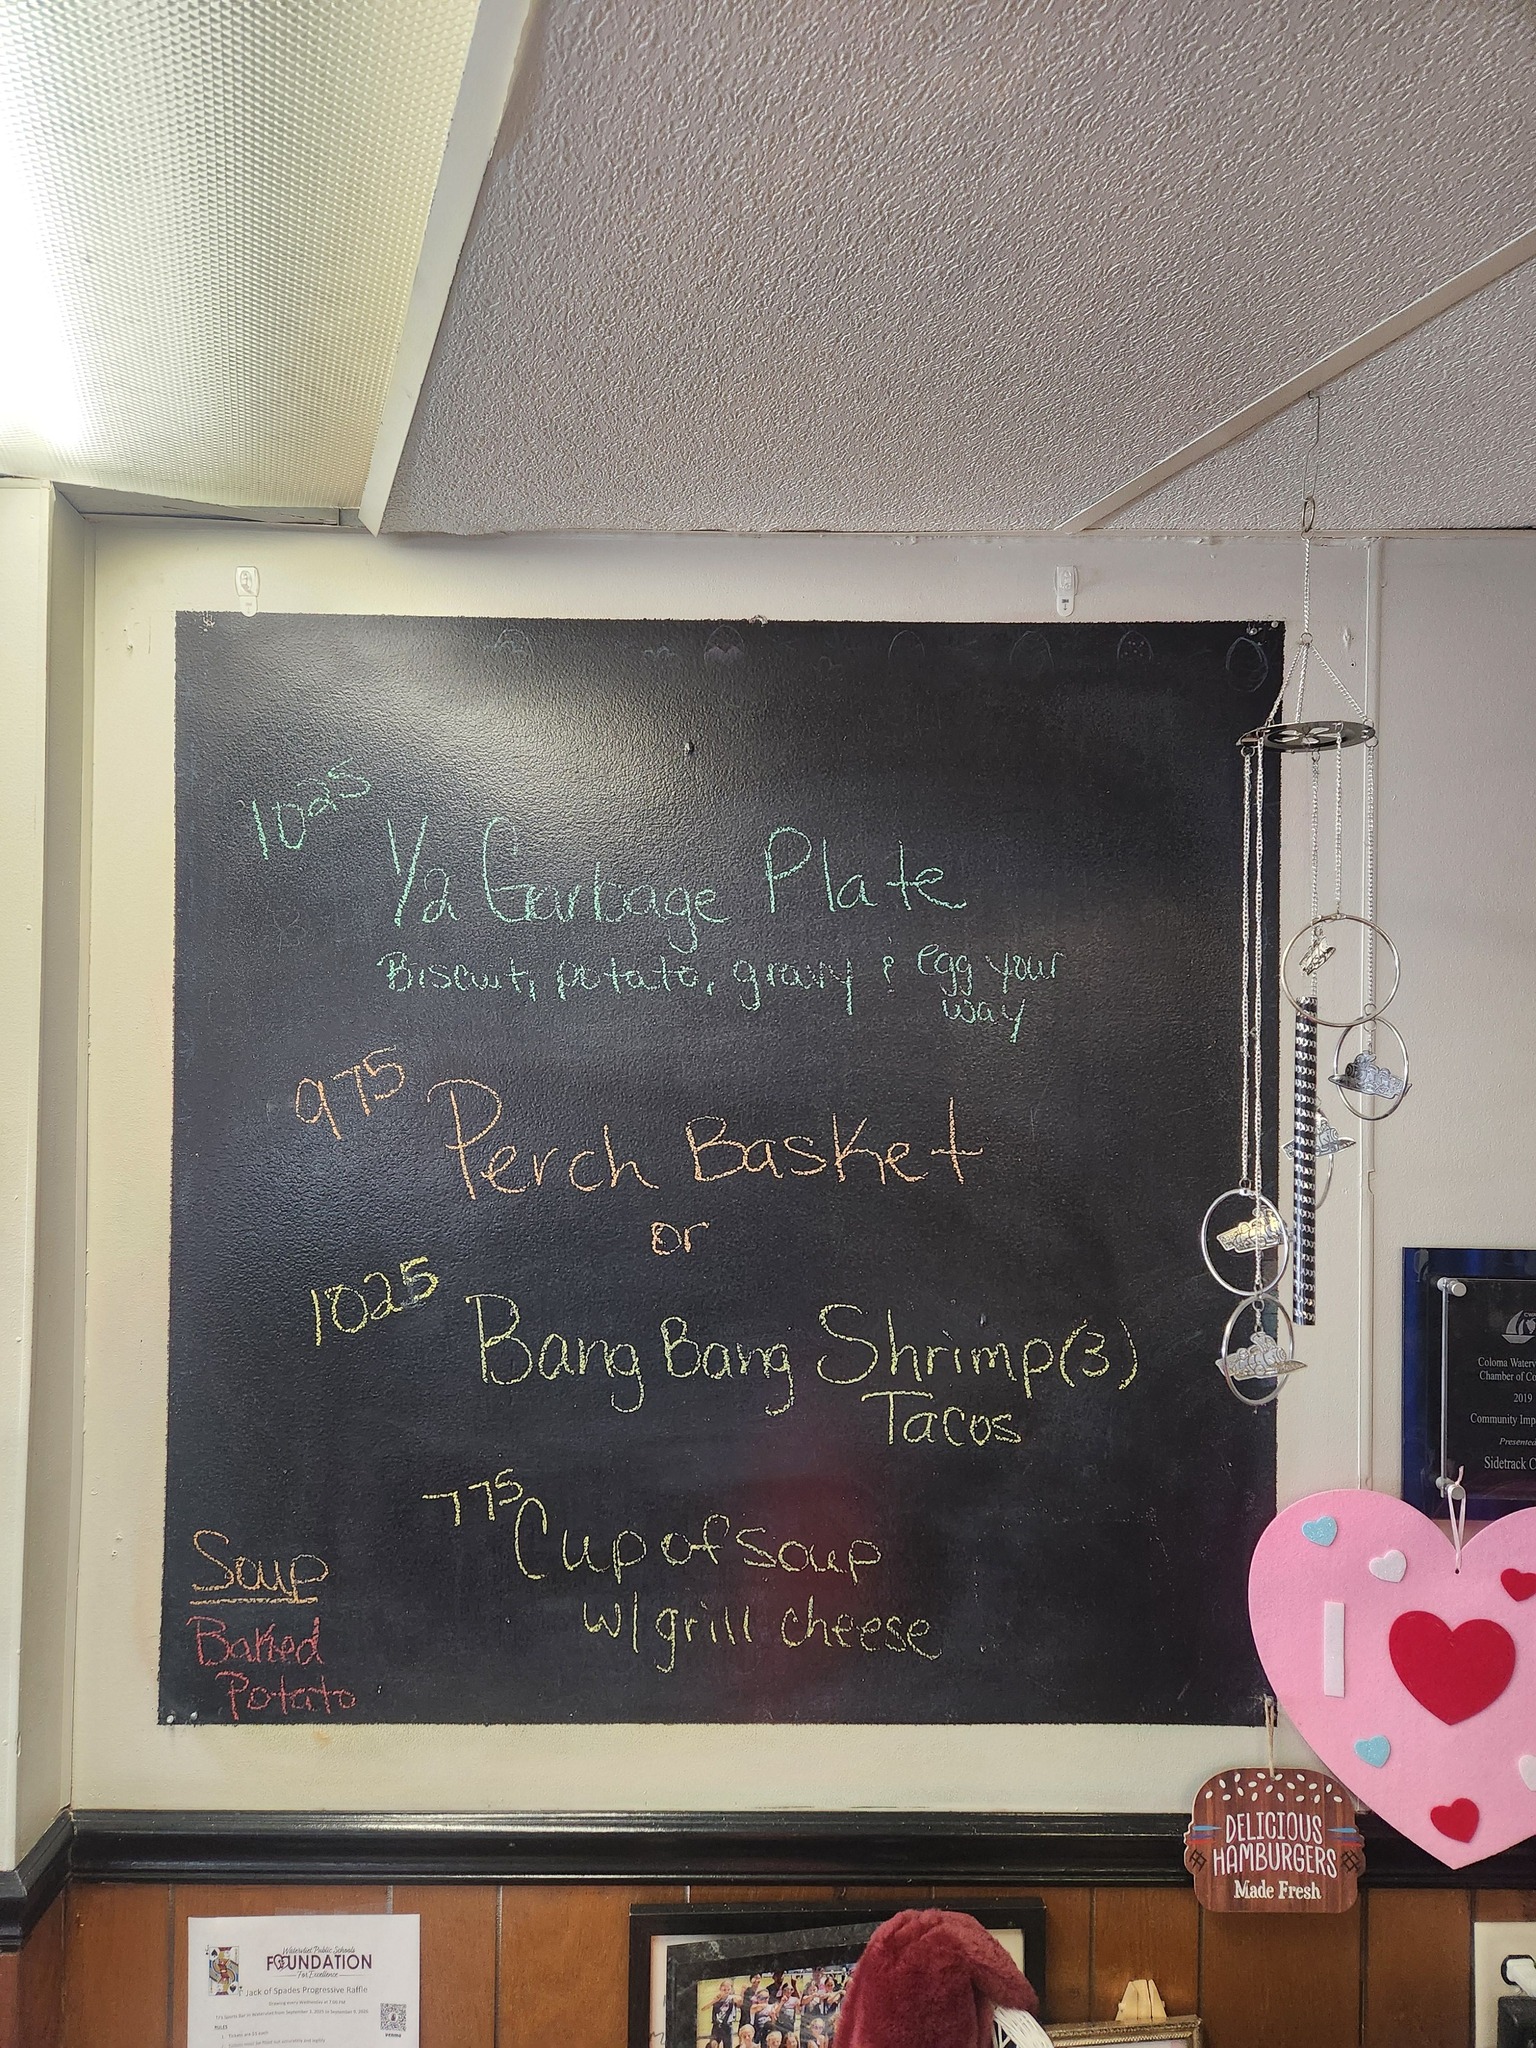 1025
1/2 Garbage Plate
Biscuit, potato, gravy & egg your
way
975
Perch Basket
or
1025
Bang Bang Shrimp (3)
Tacos
775
Cup of soup
w/ grill cheese
Soup
Baked
Potato
Coloma Waterv
Chamber of Co
2019
Community Imp
Presented
Sidetrack C
I
DELICIOUS
HAMBURGERS
Made Fresh
Watervliet Public Schools
FOUNDATION
For Excellence
Jack of Spades Progressive Raffle
Drawing every Wednesday at 7:00 PM
RULES